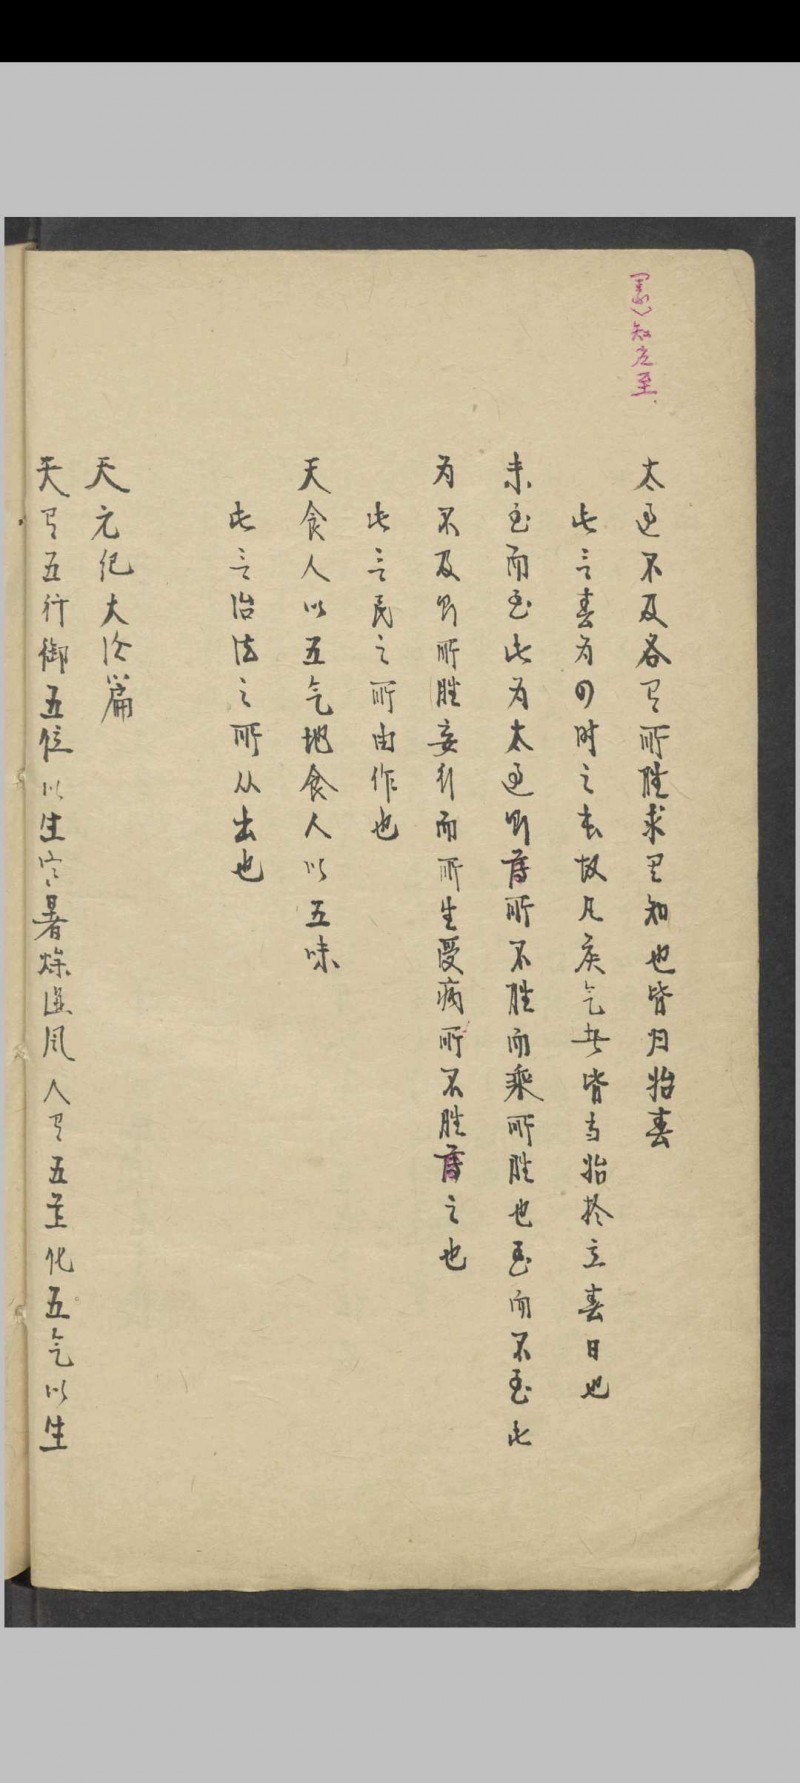 知之至
太过不及各有所胜求其知也皆归始春
此言春为四时之长故凡候气者皆当始扵立春日也
未至而至此为太过则薄所不胜而乘所胜也至而不至此
为不及则所胜妄行而所生受病所不胜薄之也
此言民之所由作也
天食人以五气地食人以五味
此言治法之所从出也
天元纪大论篇
天有五行御五位以生寒暑燥湿风人有五化五气以生